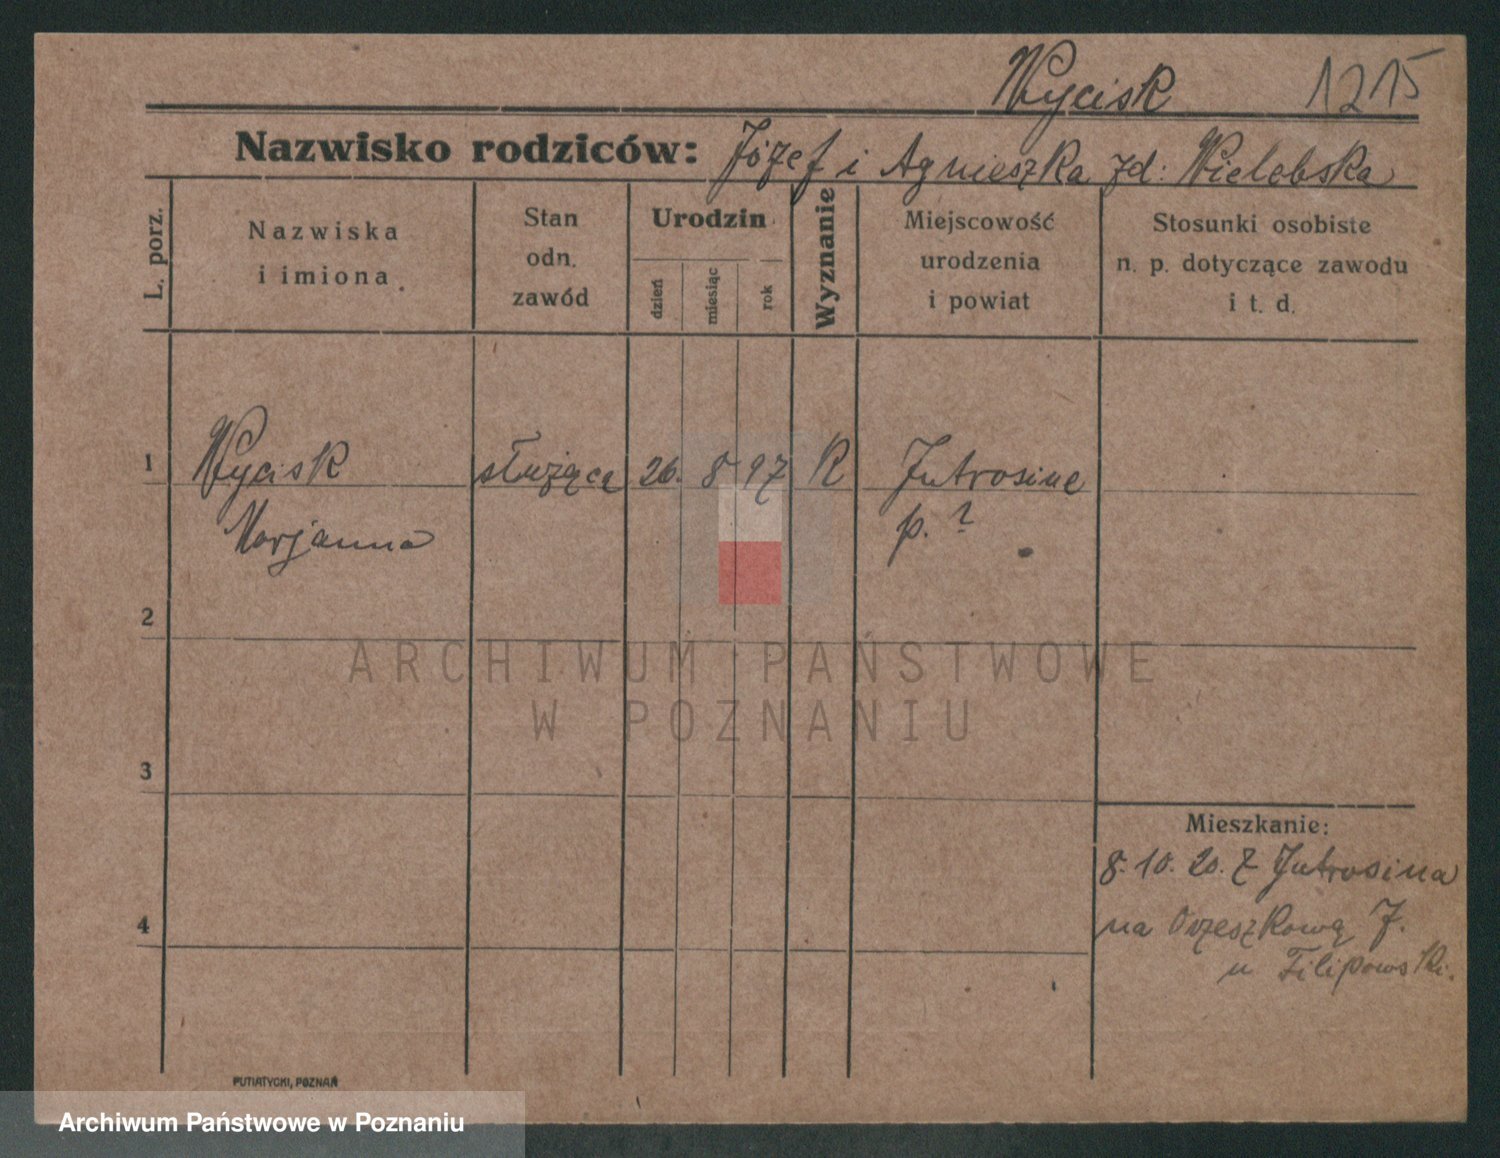 Wycisk 1215
Nazwisko rodziców: Józef i Agnieszka zd: Wielebska
L. porz.
Nazwiska
i imiona
Stan
odn.
zawód
Urodzin
dzień
miesiąc
rok
Wyznanie
Miejscowość
urodzenia
i powiat
Stosunki osobiste
n. p. dotyczące zawodu
i t. d.
1 Wycisk służąca 26. 8 97 R Jutrosine
Marjanna p. ?
2
ARCHIWUM PAŃSTWOWE
W POZNANIU
3
Mieszkanie:
8. 10. 20. z Jutrosina
4
na Orzeszkową 7.
u Filipowski.
PUTIATYCKI, POZNAŃ
Archiwum Państwowe w Poznaniu